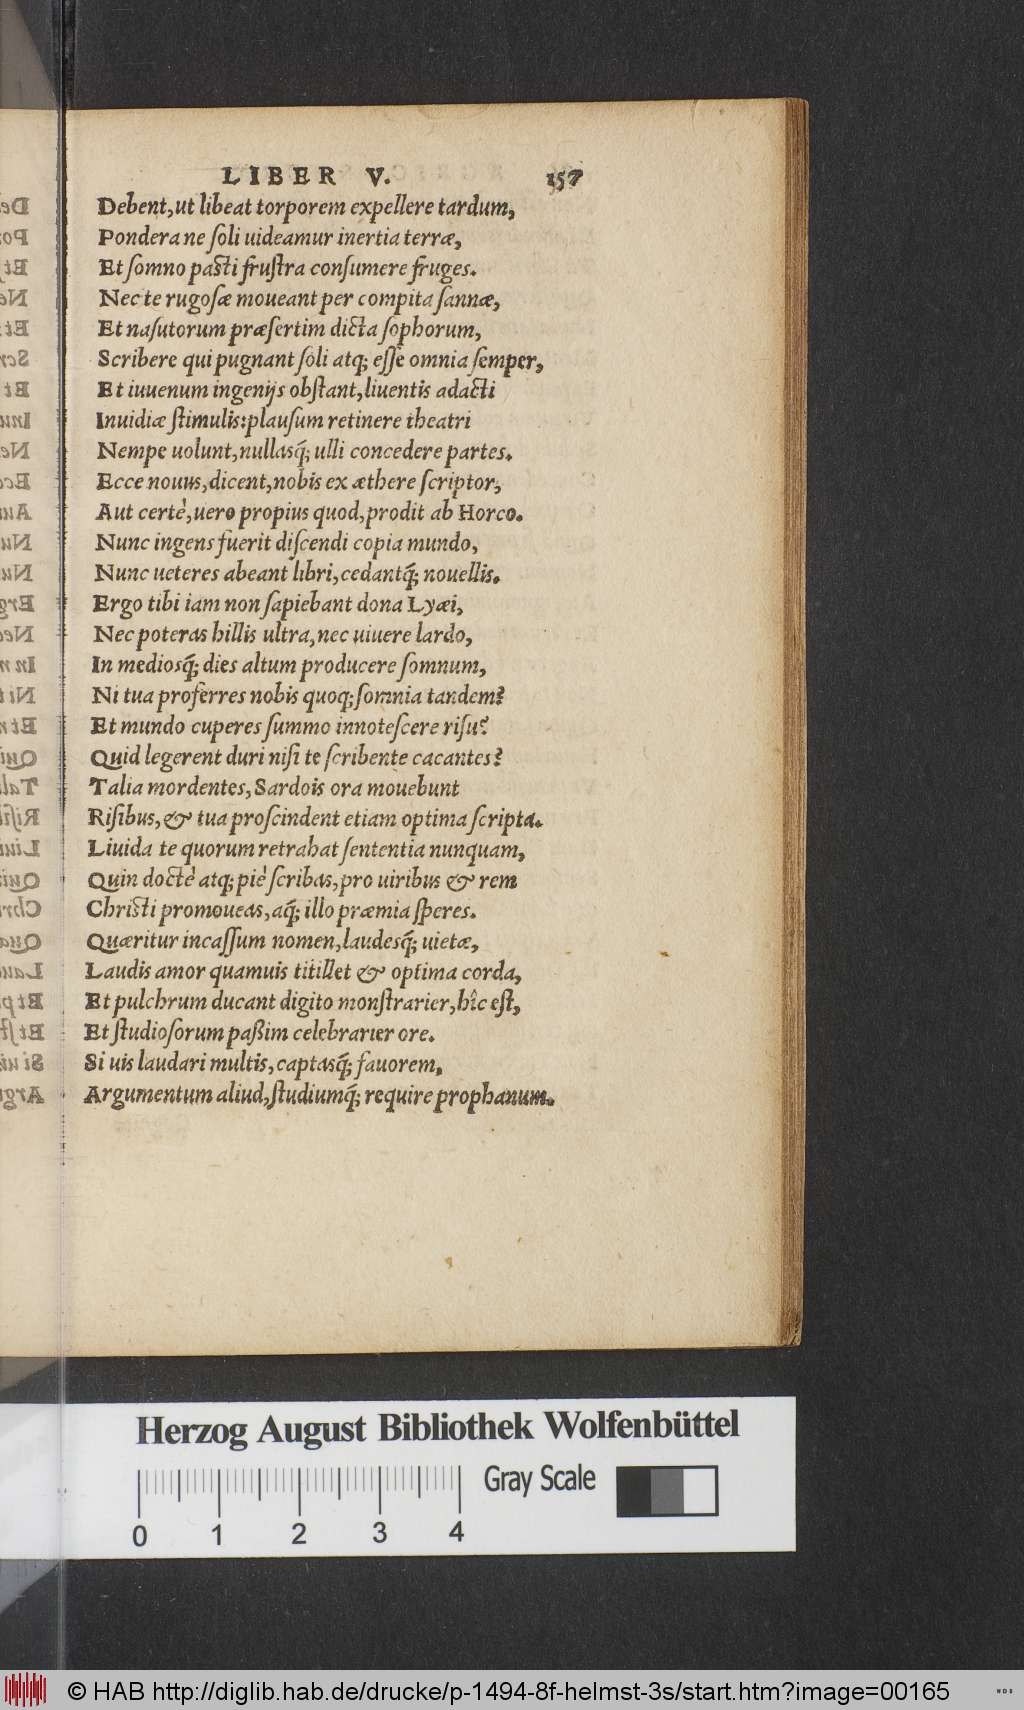 LIBER V. 157
Debent, ut libeat torporem expellere tardum,
Pondera ne soli uideamur inertia terræ,
Et somno pasti frustra consumere fruges.
Nec te rugosæ moueant per compita sannæ,
Et nasutorum præsertim dicta sophorum,
Scribere qui pugnant soli atq; esse omnia semper,
Et iuuenum ingenijs obstant, liuentis adacti
Inuidiæ stimulis: plausum retinere theatri
Nempe uolunt, nullasq́; ulli concedere partes.
Ecce nouus, dicent, nobis ex æthere scriptor,
Aut certè, uero propius quod, prodit ab Horco.
Nunc ingens fuerit discendi copia mundo,
Nunc ueteres abeant libri, cedantq́; nouellis.
Ergo tibi iam non sapiebant dona Lyæi,
Nec poteras hillis ultra, nec uiuere lardo,
In mediosq́; dies altum producere somnum,
Ni tua proferres nobis quoq; somnia tandem?
Et mundo cuperes summo innotescere risu?
Quid legerent duri nisi te scribente cacantes?
Talia mordentes, Sardois ora mouebunt
Risibus, & tua proscindent etiam optima scripta.
Liuida te quorum retrahat sententia nunquam,
Quin doctè atq; piè scribas, pro uiribus & rem
Christi promoueas, aq́; illo præmia speres.
Quæritur incassum nomen, laudesq́; uietæ,
Laudis amor quamuis titillet & optima corda,
Et pulchrum ducant digito monstrarier, hîc est,
Et studiosorum paßim celebrarier ore.
Si uis laudari multis, captasq́; fauorem,
Argumentum aliud, studiumq́; require prophanum.
Herzog August Bibliothek Wolfenbüttel
Gray Scale
0 1 2 3 4
© HAB http://diglib.hab.de/drucke/p-1494-8f-helmst-3s/start.htm?image=00165